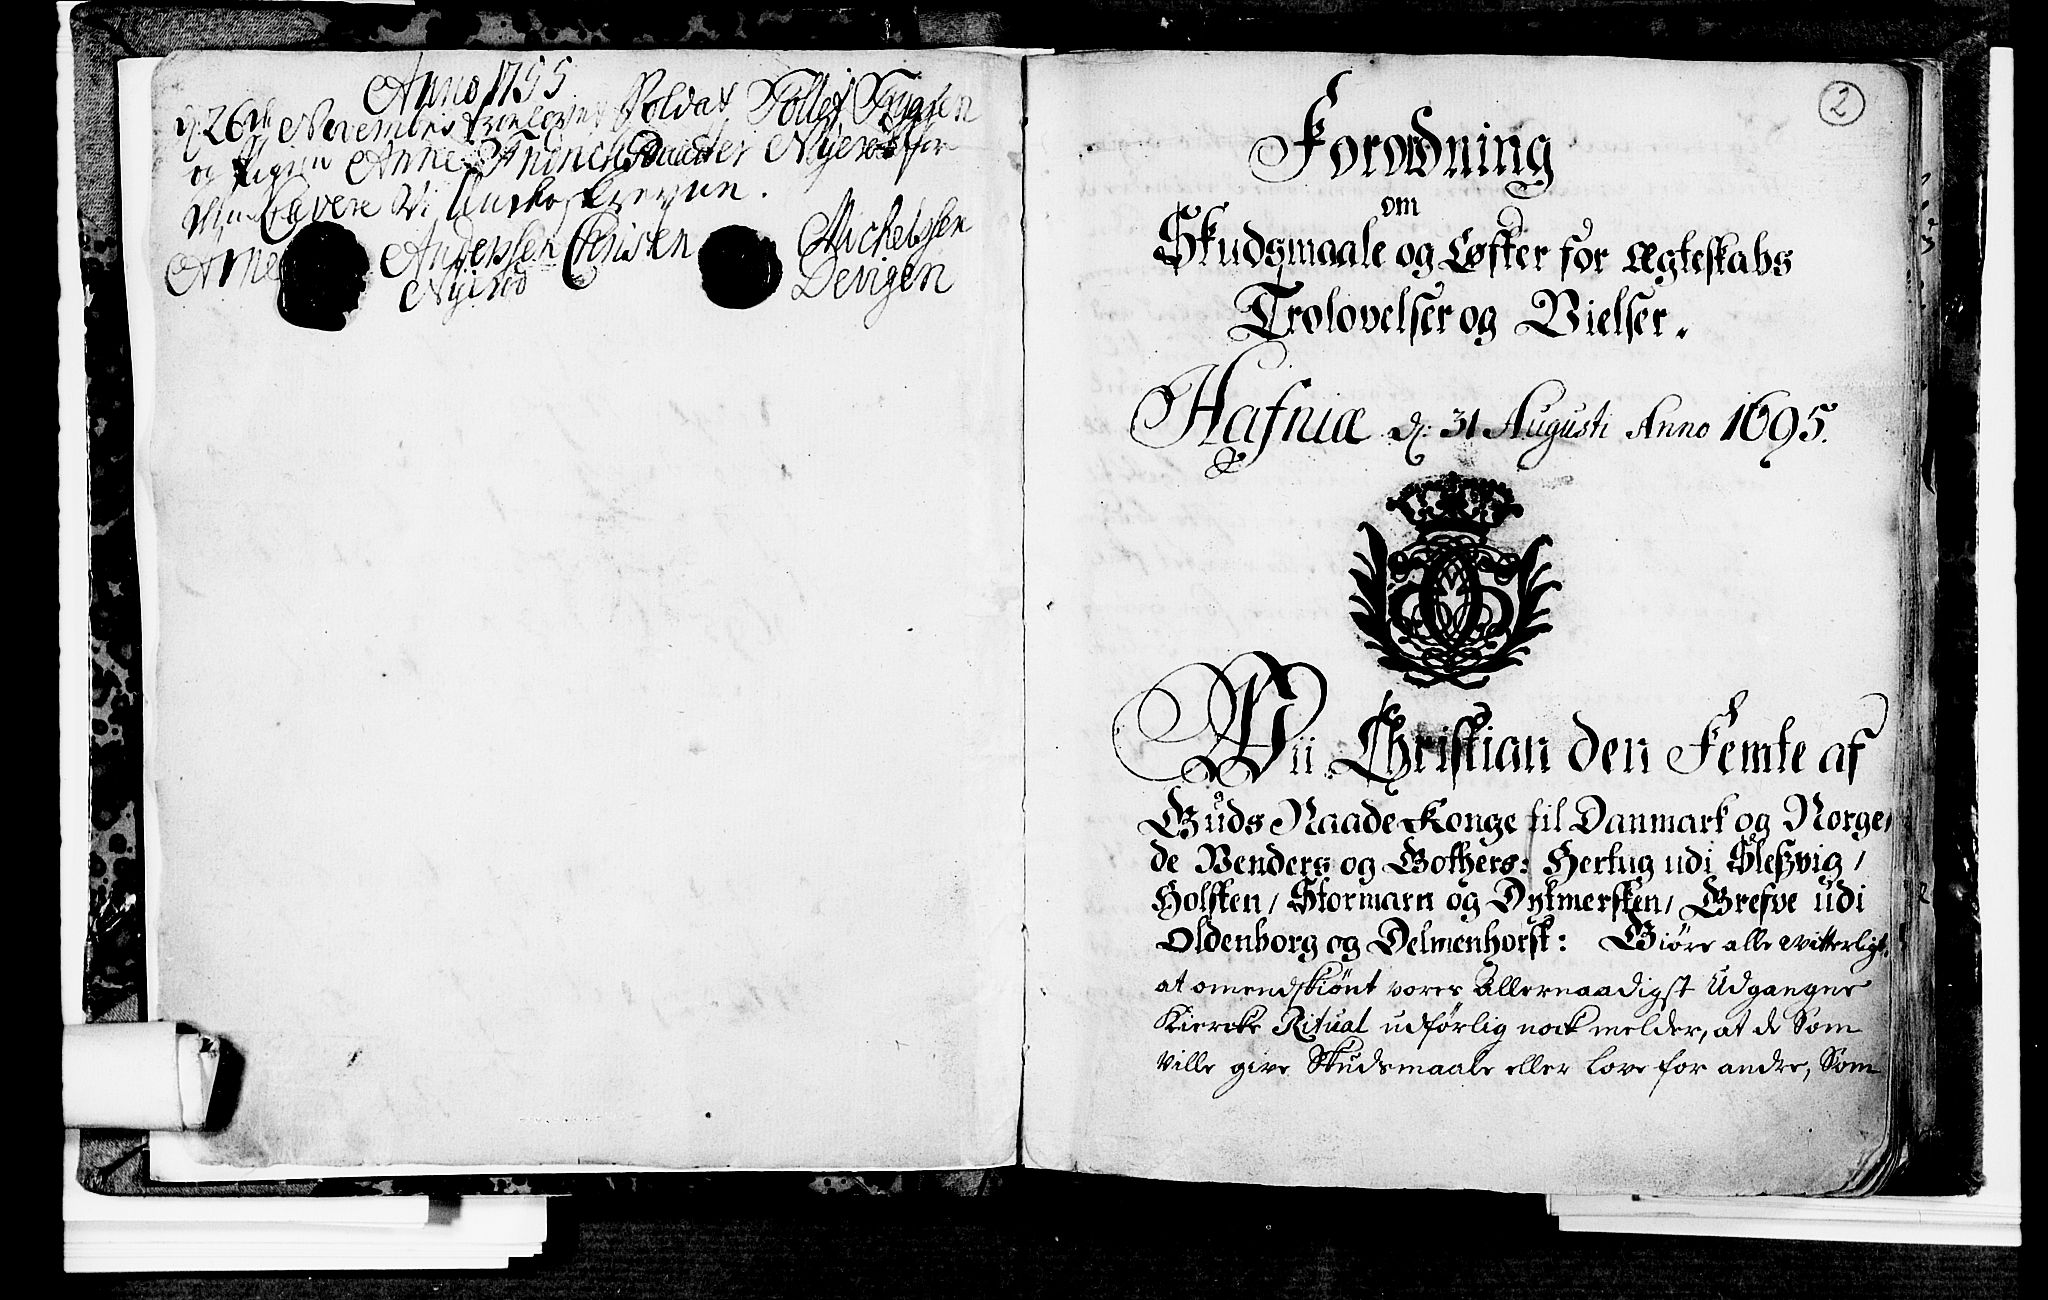 Anno 1755
d. 26de Novembris trolovet Soldat Tollef
og Pigen Anne Daatter Nyerød for
Cavere Vi Underskrevne.
Arne Anderssen Christen Michelssen
Nyerød Devigen
2
Forordning
om
Skudsmaale og Løfter for Ægteskabs
Trolovelser og Vielser.
Hafniæ d: 31 Augusti Anno 1695.
Wii Christian den Femte af
Guds Naade Konge til Danmark og Norge,
de Venders og Gothers: Hertug udi Sleßvig /
Holsten / Stormarn og Dytmersken / Grefve udi
Oldenborg og Delmenhorst: Giøre alle witterligt,
at omendskiønt vores Allernaadigst Udgangne
Kiercke Ritual udførlig nock melder, at de Som
ville give Skudsmaale eller Love for andre, Som